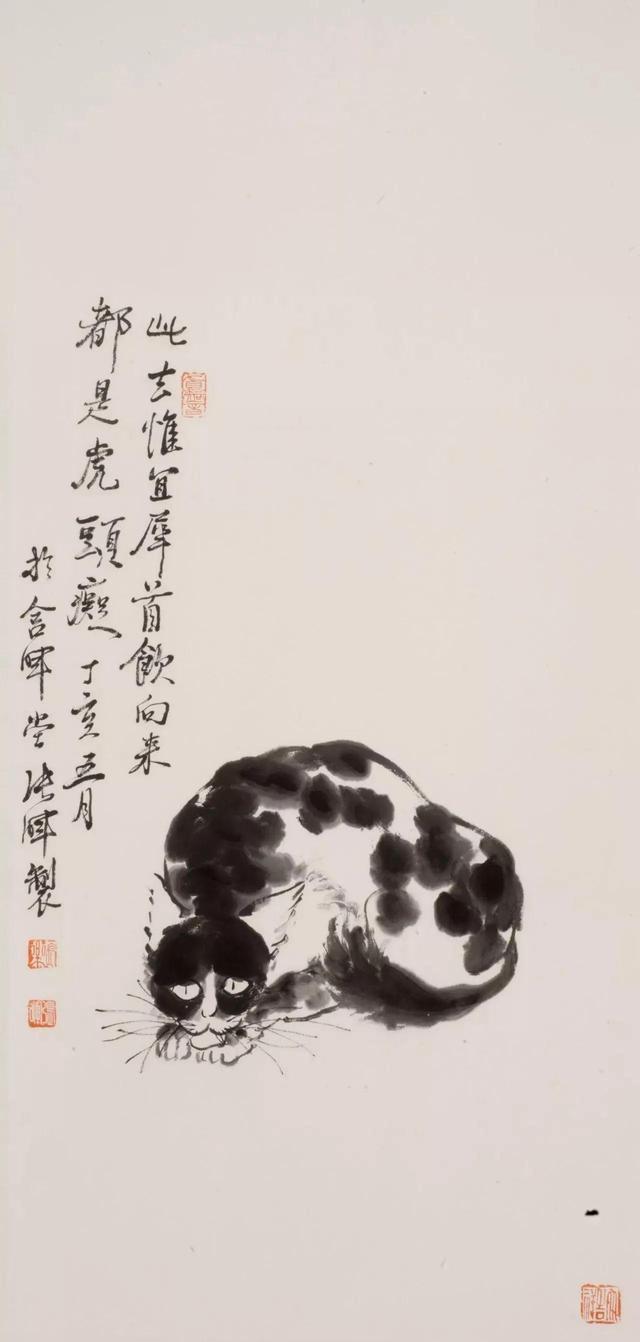 此去惟宜犀首飲向来
都是虎頭癡丁亥五月
於含暉堂張暉製